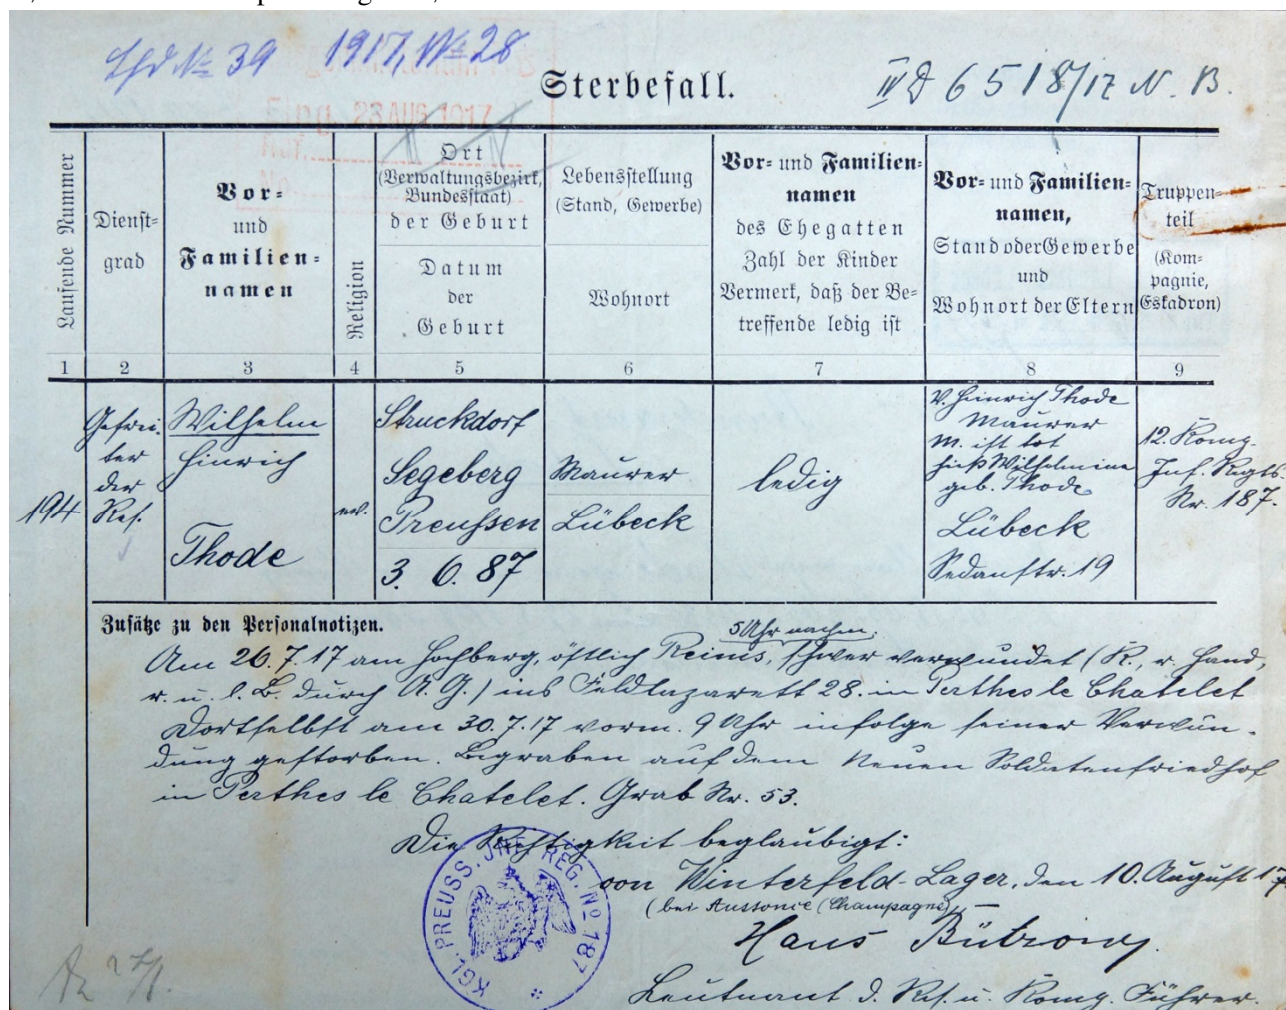 Lfd № 39 1917, № 28
Sterbefall.
IV D 6518/17 N. B.
23 AUG 1917
Laufende Nummer
Dienst-
grad
Vor-
und
Familien-
namen
Religion
Ort
(Verwaltungsbezirk,
Bundesstaat)
der Geburt
Datum
der
Geburt
Lebensstellung
(Stand, Gewerbe)
Wohnort
Vor- und Familien-
namen
des Ehegatten
Zahl der Kinder
Vermerk, daß der Be-
treffende ledig ist
Vor- und Familien-
namen,
Stand oder Gewerbe
und
Wohnort der Eltern
Truppen-
teil
(Kom-
pagnie,
Eskadron)
1 2 3 4 5 6 7 8 9
194
Gefrei-
ter
der
Res.
Wilhelm
Hinrich
Thode
ev.
Struckdorf
Segeberg
Preußen
3. 6. 87
Maurer
Lübeck
ledig
V. Heinrich Thode
Maurer
M. ist tot
hieß Wilhelmine
geb. Thode
Lübeck
Sedanstr. 19
12. Komp.
Inf. Regts.
Nr. 187.
Zusätze zu den Personalnotizen.
5 Uhr nachm.
Am 26.7.17 am Hochberg, östlich Reims, schwer verwundet (K., r. Hand,
r. u. l. B. durch A. G.) ins Feldlazarett 28. in Perthes le Chatelet
Dortselbst am 30.7.17 vorm. 9 Uhr infolge seiner Verwun-
dung gestorben. Begraben auf dem Neuen Soldatenfriedhof
in Perthes le Chatelet. Grab Nr. 53.
Die Richtigkeit beglaubigt:
von Winterfeld-Lager, den 10. August 17
(bei Aussonce (Champagne)
Hans Bützow
Leutnant d. Res. u. Komp. Führer.
KGL. PREUSS. INF. REG. № 187